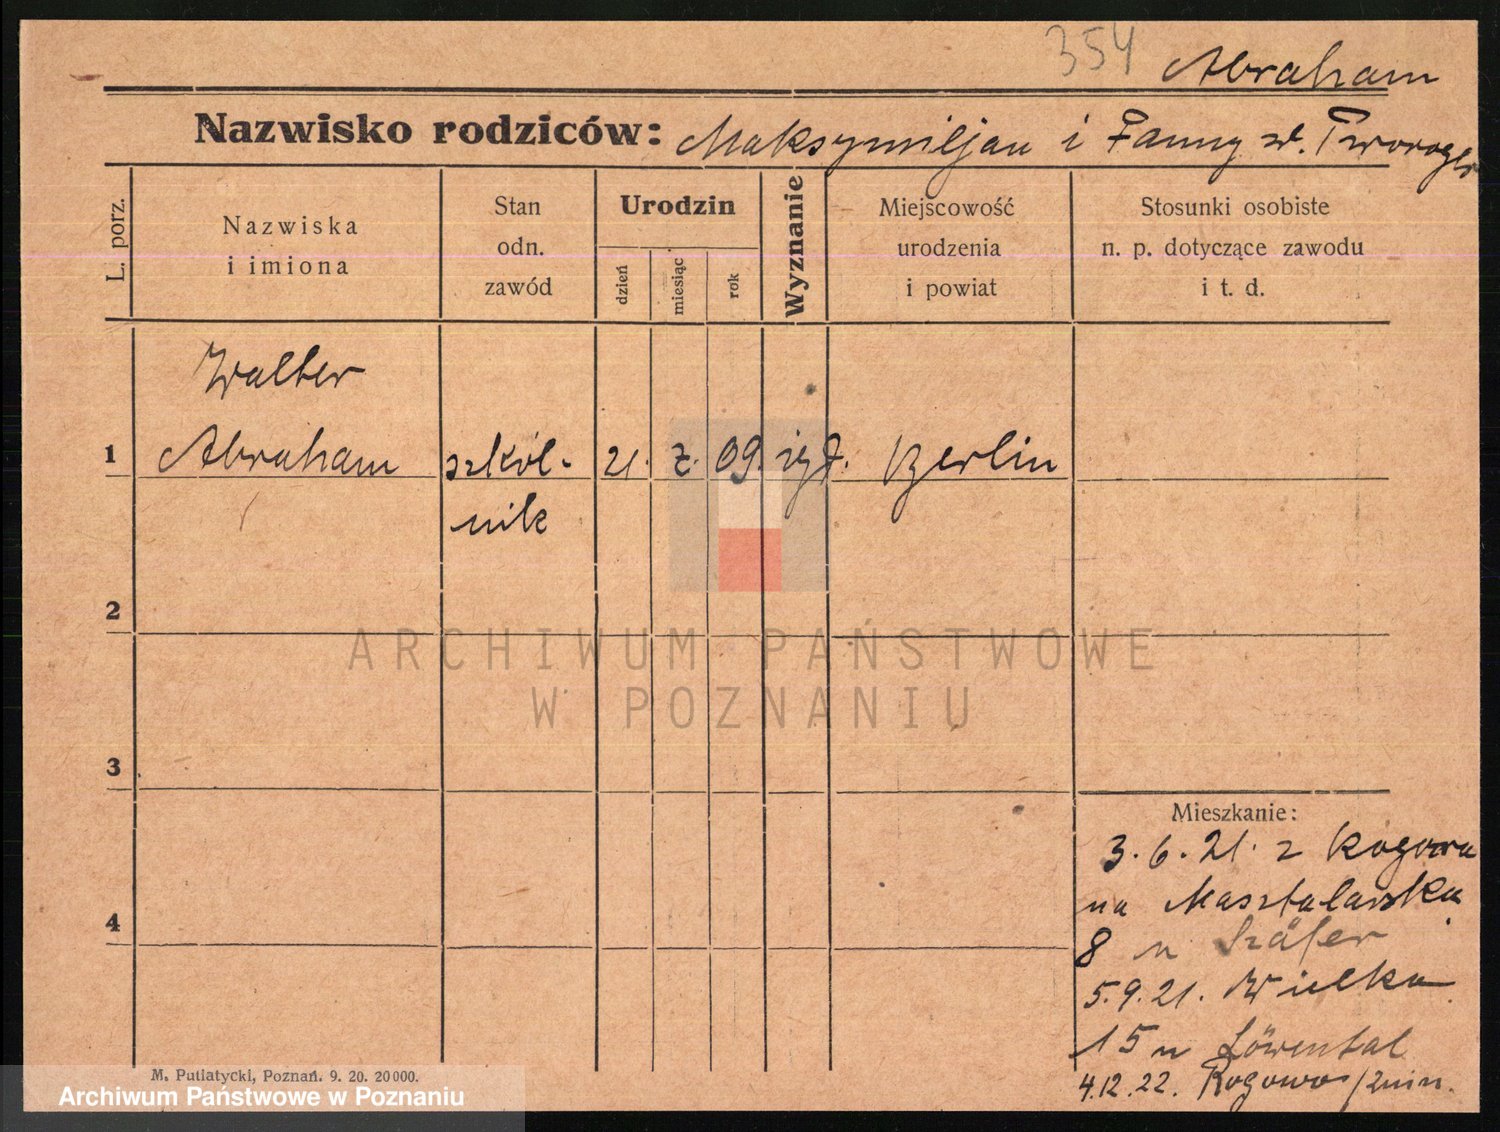 354 Abraham
Nazwisko rodziców: Maksymiljan i Fanny zd. Tworoger
L. porz.
Nazwiska
i imiona
Stan
odn.
zawód
Urodzin
dzień
miesiąc
rok
Wyznanie
Miejscowość
urodzenia
i powiat
Stosunki osobiste
n. p. dotyczące zawodu
i t. d.
Walter
1 Abraham szkól- 21. 2. 09. żyd. Berlin
nik
2
ARCHIWUM PAŃSTWOWE
W POZNANIU
3
4
Mieszkanie:
3.6.21. z Rogowa
na Masztalarska
8 u Szäfer
5.9.21. Wielka
15 u Löwental
4.12.22. Rogowo
M. Putiatycki, Poznań. 9. 20. 20000.
Archiwum Państwowe w Poznaniu